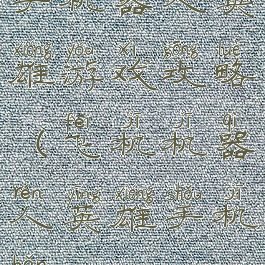 机器人英
xióng yóu xì gōng lüè
雄游戏攻略
fēi jī jī qì
(飞机机器
rén yīng xióng shǒu jī
人英雄手机
bǎn